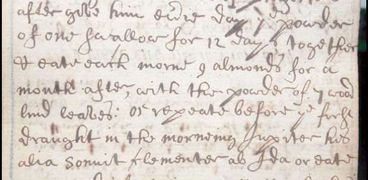 after give him evrie day ye powder
of one swallow for 12 days together
& eate each morne 9 almonds for a
month after, with the powder of 7 wood
bind leaves: Or repeate before ye first
draught in the morneing Jupiter his
alia sonuit clementer ab Ida or eate